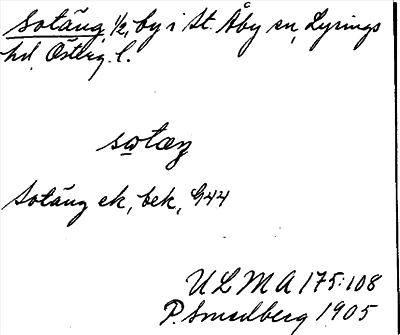 Sotäng, 1/2, by i St. Åby sn, Lysings
hd, Österg. l.
sωtæŋ
Sotäng ek, bek, G44
ULMA 175:108
P. Smedberg 1905